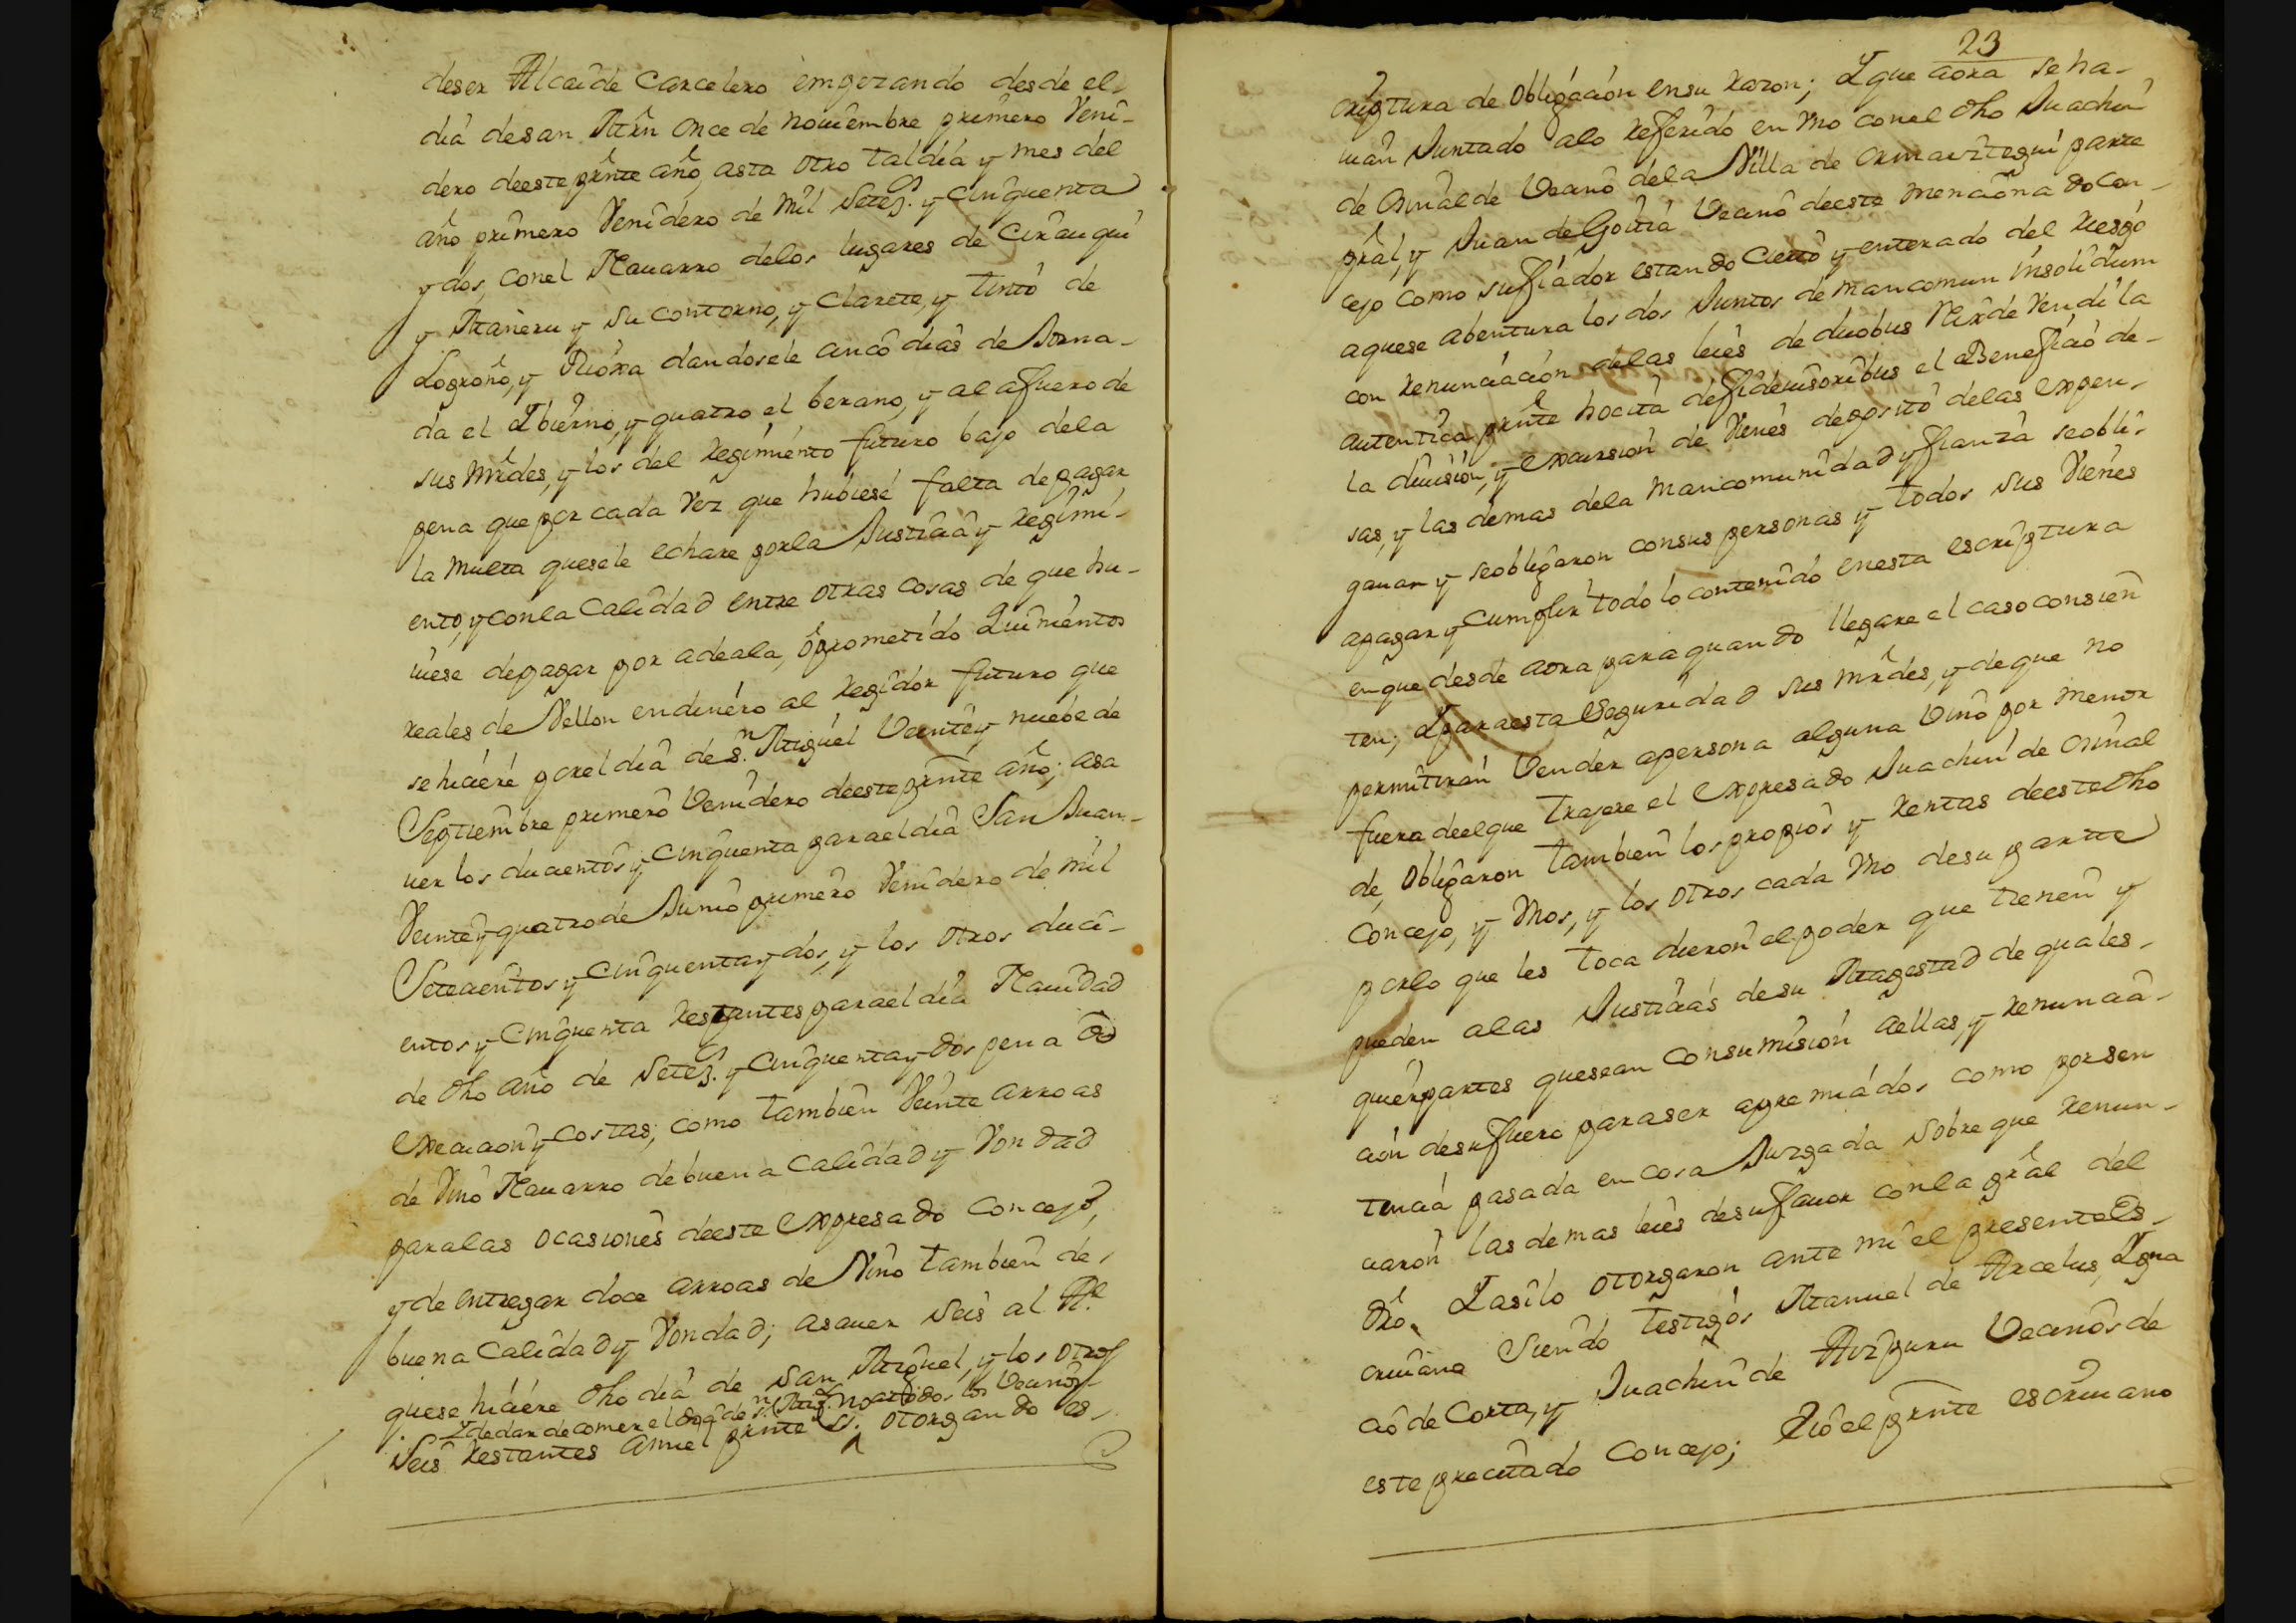 deser Alcaide Carcelero empezando desde el-
dia desan Mrn Once de noviembre primero Veni-
dero deeste prnte año, asta otro tal dia y mes del
año primero Venidero de Mil Setez.s y Cinquenta
y dos, conel Navarro delos lugares de Cirauqui
y Mañeru y su contorno, y Clarete, y tinto de
Logroño, y Rioxa dandosele cinco dias de Jorna-
da el Ibierno, y quatro el berano, y al afuero de
sus Mrdes, y los del Regimiento futuro bajo dela
pena que por cada Vez que hubiese falta de pagar
la Multa quesele echare porla Justicia y Regimi-
ento, y conla Calidad entre otras cosas de que hu-
viese depagar por adeala, o prometido Quinientos
reales de Vellon endinero al Regidor futuro que
se hiciere porel dia de S.n Miguel Veinte y nuebe de
Septiembre primero Venidero deeste prnte año; asa
ver los ducientos y cinquenta parael dia San Juan-
Veinte y quatro de Junio primero Venidero de mil
Setecientos y Cinquenta y dos, y los otros duci-
entos y Cinquenta Restantes parael dia Navidad
de dho año de Setez.s y Cinquenta y dos pena de
execucion y costas; como tambien Veinte arroas
de Vino Navarro de buena Calidad y Vondad
paralas ocasiones deeste expresado Concejo,
y de entregar doce arroas de Vino tambien de
buena Calidad y Vondad; asaver Seis al Rl
quese hiciere dho dia de San Miguel, y los otros
Y de dar de comer el dia de S.n Mig.l no a todos los Vecinos
Seis Restantes ami el prnte S.; otorgando es-
23
criptura de obligacion ensu Razon; Y que aora se ha-
vian Juntado alo Referido en Vno conel dho Juachin
de Osinalde Vecino dela Villa de Ormaiztegui parte
pral, y Juan de Goitia Vecino deeste mencionado Con-
cejo como sufiador estando Cierto y enterado del Riesgo
aquese abentura los dos Juntos de mancomun insolidum
con Renunciacion delas leies de duobus Rex de Vendi la
autentica prnte hocita defidejusoribus el Beneficio de-
la division, y excursion de Vienes deposito delas expen-
sas, y las demas dela Mancomunidad y fianza se obli-
gavan y se obligaron consus personas y todos sus Vienes
apagar y Cumplir todo lo contenido enesta escriptura
en que desde aora para quando llegare el caso consien
ten; Y paraesta Seguridad sus Mrdes, y deque no
permitiran Vender apersona alguna Vino por menor
fuera deelque trajere el expresado Juachin de Osinal
de, obligaron tambien los propios y Rentas deeste dho
Concejo, y Vnos, y los otros cada Vno desu partte
porlo que les toca dieron el poder que tienen y
pueden alas Justicias desu Magestad de quales-
quier partes quesean Consumision aellas, y Renuncia-
cion desufuero paraser apremiados como porsen
tencia pasada en cosa Juzgada sobre que Renun-
ciaron las demas leies desufavor conla gral del
dro, Y asilo otorgaron ante mi el presente Es-
crivano Siendo testigos Manuel de Arcelus, Ygna
cio de Corta, y Juachin de Aizpuru Vecinos de
este precitado Concejo; Yo el prnte escrivano